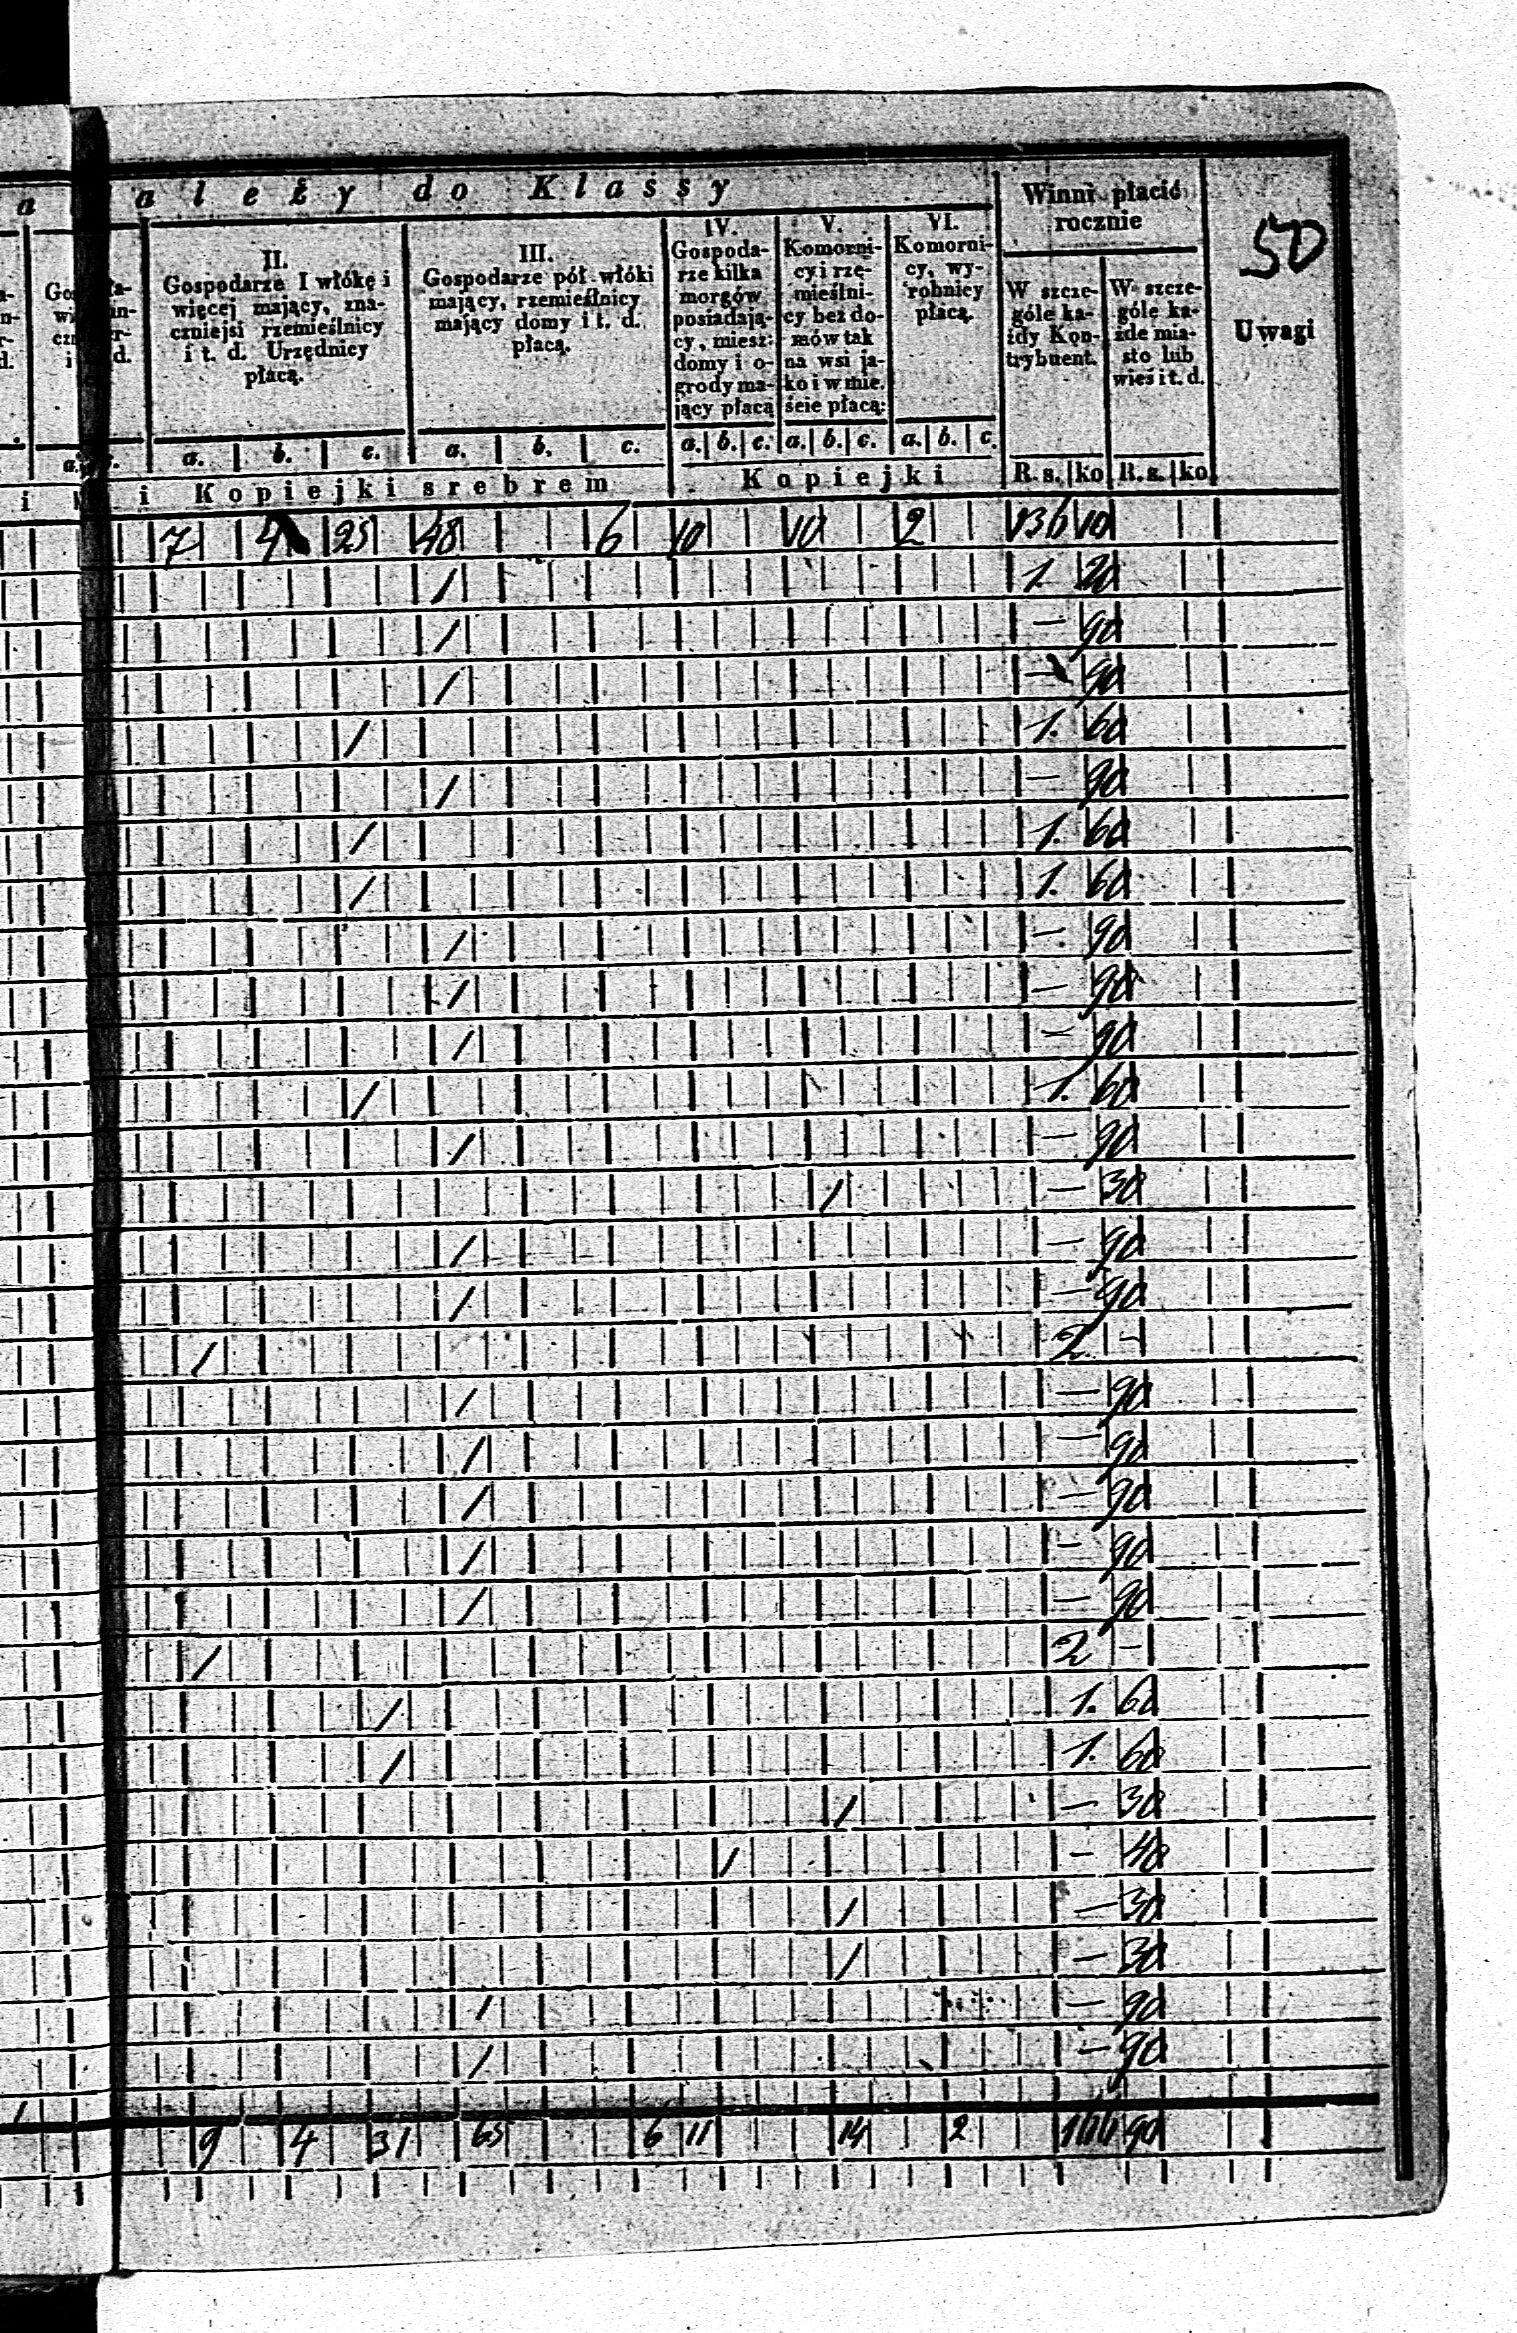 a leży do Klassy
Winni płacić rocznie
50
II. Gospodarze I włókę i więcej mający, znaczniejsi rzemieślnicy i t. d. Urzędnicy płacą.
III. Gospodarze pół włóki mający, rzemieślnicy mający domy i t. d. płacą.
IV. Gospodarze kilka morgów posiadający, miesz: domy i ogrody mający płacą
V. Komornicy i rzemieślnicy bez domów tak na wsi jako i w mieście płacą:
VI. Komornicy, wyrobnicy płacą.
W szczególe każdy Kontrybuent.
W szczególe każde miasto lub wieś i t. d.
Uwagi
a. b. c. a. b. c. a. b. c. a. b. c. a. b. c.
i Kopiejki srebrem Kopiejki R. s. ko R. s. ko
7 4 25 48 6 10 10 2 136 10
/ 1. 20
/ — 90
/ — 90
/ 1. 60
/ — 90
/ 1. 60
/ 1. 60
/ — 90
/ — 90
/ — 90
/ 1. 60
/ — 90
/ — 30
/ — 90
/ — 90
/ 2 —
/ — 90
/ — 90
/ — 90
/ — 90
/ — 90
/ 2 —
/ 1. 60
/ 1. 60
/ — 30
/ — 40
/ — 30
/ — 30
/ — 90
/ — 90
9 4 31 65 6 11 14 2 166 90